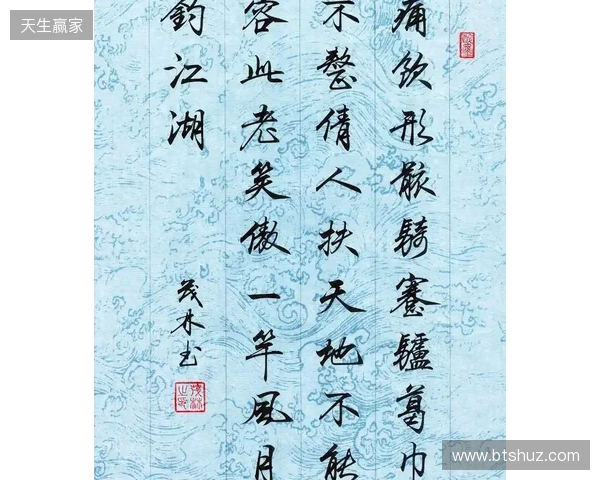 天生赢家
痛飲形骸騎蹇驢葛巾
不整倩人扶天地不能
容此老笑傲一竿風月
釣江湖
茂林书
www.btshuz.com